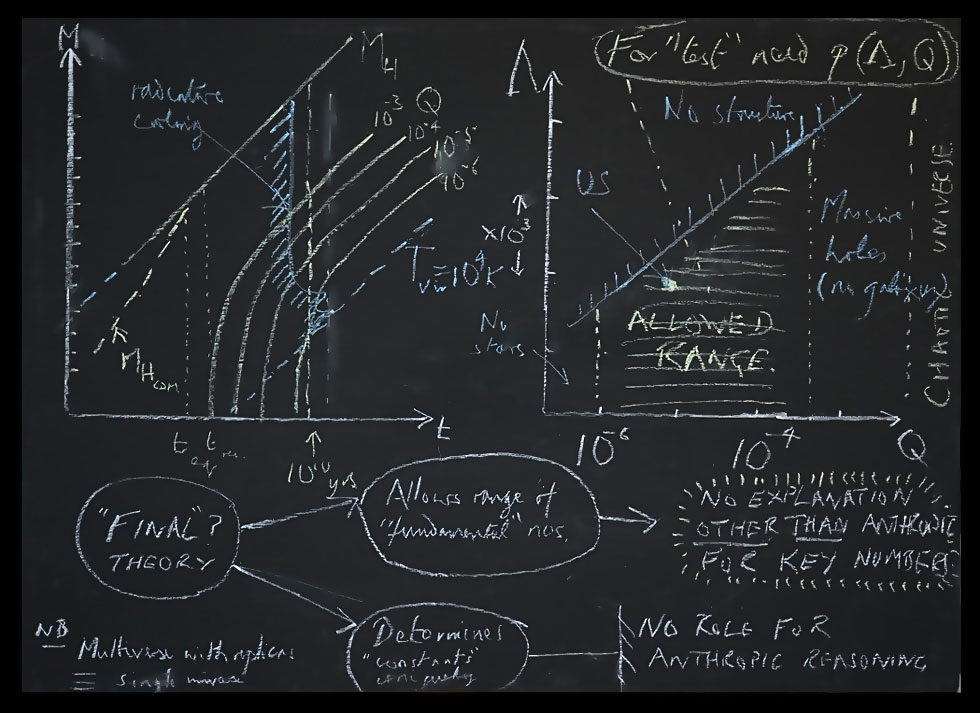 M
M_H
radiative
cooling
10^-3 Q
10^-4
10^-5
10^-6
T_vir = 10^4 K
M_H com
t
t_eq t_rec
10^10 yrs
For "test" need p(Λ, Q)
Λ
No structure
US
×10^3
No
stars
Massive
holes
(no galaxy)
CHAOTIC UNIVERSE
ALLOWED
RANGE.
10^-6
10^-4
Q
"FINAL"?
THEORY
Allows range of
"fundamental" nos.
NO EXPLANATION
OTHER THAN ANTHROPIC
FOR KEY NUMBERS
Determines
"constants"
uniquely
NO ROLE FOR
ANTHROPIC REASONING
NB
Multiverse with replicas
≡ single universe